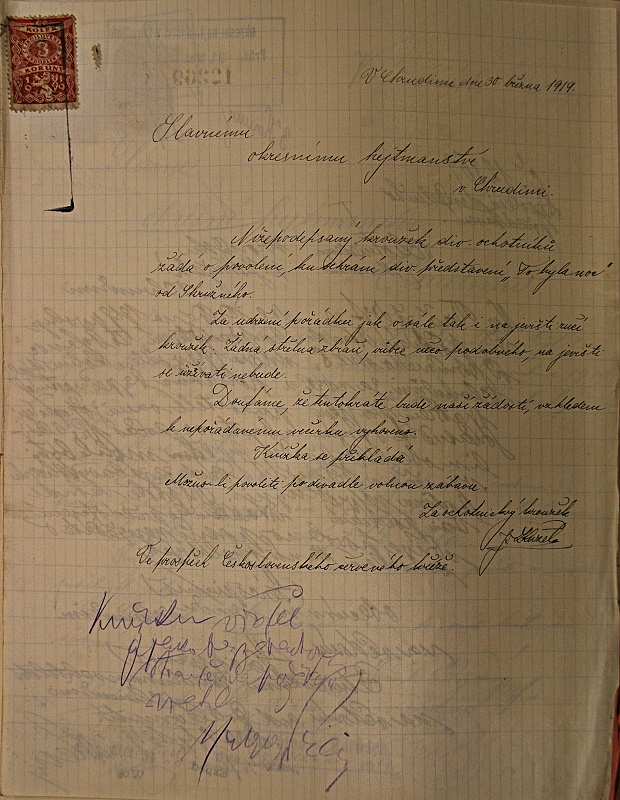 KOLEK
3
KORUNY
12369
V Chrudimi dne 30. března 1919.
Slavnému
okresnímu hejtmanství
v Chrudimi.
Nížepodepsaný kroužek div. ochotníků
žádá o povolení, ku sehrání div. představení „To byla noc"
od Skružného.
Za udržení pořádku jak v sále tak i na jevišti ručí
kroužek. Žádná střelná zbraň, vůbec něco podobného, na jevišti
se užívati nebude.
Doufáme, že tentokráte bude naší žádosti, vzhledem
k nepořádanému večírku vyhověno.
Knížka se překládá
Možno-li povoliti po divadle volnou zábavu.
Za ochotnický kroužek
Ve prospěch Československého červeného kříže.